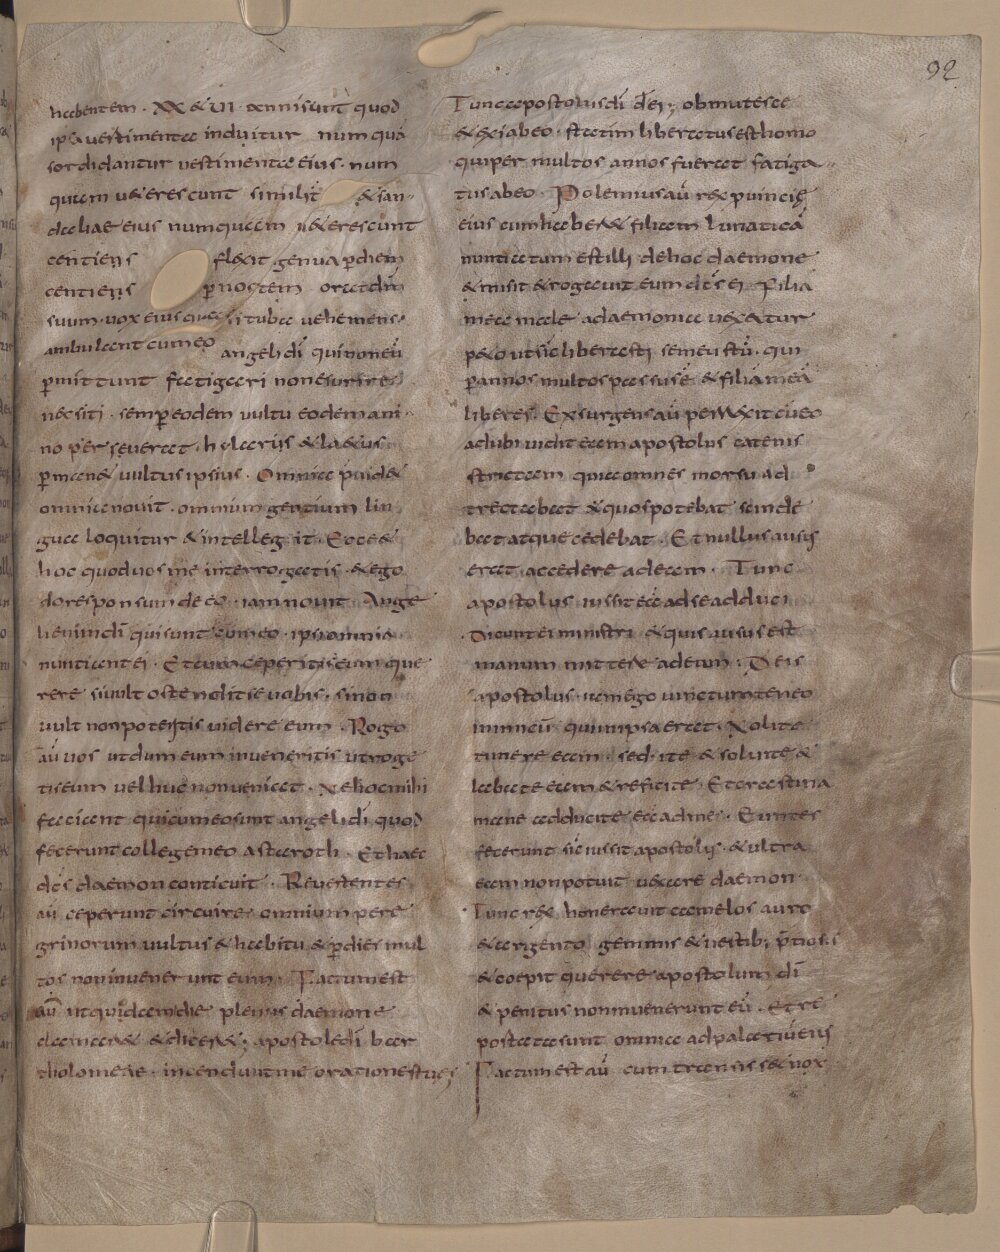 92
habentem · XX & VI · annisunt quod
ipsa vestimenta induitur numquā
sordidantur vestimenta eius · num
quam u&erescunt similit & san
daliae eius numquam u&erescunt
centies flexit genua p̱ diem
centies p̱ noctem orat dm̄
suum · vox eius quasi tuba vehemens ·
ambulant cum eo angeli dī qui non eū
p̱mittunt fatigari non esurire
nec siti · semp̱ eodem vultu eodem ani
mo perseverat · hilaris & laetus
p̱man& vultus ipsius · Omnia p̄uid&
omnia novit · omnium gentium lin
gua loquitur & intellegit · Ecce &
hoc quod uos me interrogatis · & ego
do responsum de eo · iam novit Ange
li enim dī qui sunt cum eo · ipsi omnia
nuntiant ei · Et cum ceperitis eum que
rere si uult ostendit se uobis · si non
vult non potestis videre eum · Rogo
aū uos ut dum eum inveneritis ut roge
tis eum vel huc non veniat · Ne hoc mihi
faciant qui cum eo sunt angeli dī quod
fecerunt collegem eo astaroth · Et haec
dc̄s daemon conticuit · Revertentes
aū ceperunt circuire omnium pere
grinorum vultus & habitu & p̱ dies mul
tos non invenerunt eum · Factum est
aū ut quidam die plenus daemone
clamar& & dicer& ; apostole dī bar
tholomeae · incendunt me orationes tuae
Tunc apostolus dī dei ; obmutesce
& exi ab eo · statim liberatus est homo
qui per multos annos fuerat fatiga
tus ab eo · Polemius aū rex puincię
eius cum haber& filiam lunaticā
nuntiatum est illi de hoc daemone
& misit & rogavit eum dc̄s ei · Filia
mea male a daemonia vexatur
peto ut sic liberasti seneustū · qui
p̱ annos multos passus ē & filiā meā
liberes · Exsurgens aū perrexit cū eo
ad ubi vidit eam apostolus catenis
strictam quia omnes morsu ad
trectabat & quos potebat scinde
bat atque cedebat · Et nullus ausus
erat accedere ad eam · Tunc
apostolus iussit eā ad se adduci
Dicunt ei ministri & quis ausus est
manum mittere ad eam · Dc̄s
apostolus · iam ego vinctum teneo
inimicū qui in ipsa erat · Nolite
timere eam · sed ite & solvite &
labate eam & reficite · Et crastina
mane adducite eā ad me · Euntes
fecerunt sic iussit apostolus · & ultra
eam non potuit vexare daemon
Tunc rex honeravit camelos auro
& argento gemmis & vestib; p̄tiosis
& coepit querere apostolum dī
& penitus non invenerunt eū · Et re
postata sunt omnia ad palatiū eius
Factum est aū cum transiss& nox